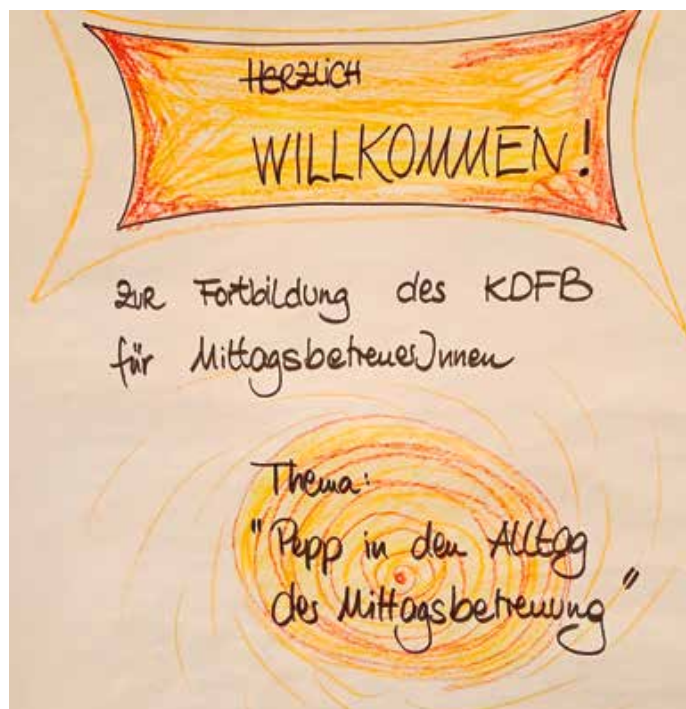 HERZLICH
WILLKOMMEN!
zuR Fortbildung des KDFB
für MittagsbetreuerInnen
Thema:
"Pepp in den Alltag
der Mittagsbetreuung"